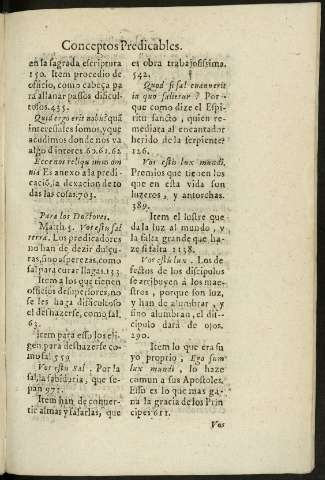 Conceptos Predicables.
en la sagrada escriptura
150. Item procedio de
oficio, como cabeça pa
ra allanar passos dificul-
tosos. 435.
Quid ergo erit nobis? quã
interessales somos, y que
acudimos donde nos va
algo d'interes. 60. 61. 62
Ecce nos reliquimus om
nia Es anexo a la predi
cació, la dexacion de to
das las cosas. 703.
Para los Doctores.
Matth. 5. Vos estis sal
terræ. Los predicadores
no han de dezir dulçu-
ras, sino asperezas, como
sal para curar llagas. 133
Item a los que tienen
officios de superiores, no
se les haga dificultoso
el deshazerse, como sal.
63.
Item para esso los eli-
gen, para deshazerse co
mo sal. 559
Vos estis sal. Por la
sal, la sabiduria, que se-
pan 973.
Item han de conuer-
tir almas y salarlas, que
es obra trabajosissima.
542.
Quod si sal euanuerit
in quo salietur? Por-
que como dize el Espi-
ritu sancto, quien re-
mediara al encantador
herido de la serpiente?
126.
Vos estis lux mundi.
Premios que tienen los
que en esta vida son
luzeros, y antorchas.
389.
Item el lustre que
da la luz al mundo, y
la falta grande que ha-
ze si falta 1138.
Vos estis lux. Los de-
fectos de los discipulos
se atribuyen a los maes-
tros, porque son luz,
y han de alumbrar, y
sino alumbran, el dis-
cipulo dará de ojos.
290.
Item lo que era su
yo proprio, Ego sum
lux mundi, lo haze
comun a sus Apostoles.
Esso es lo que mas ga-
na la gracia de los Prin
cipes 611.
Vos